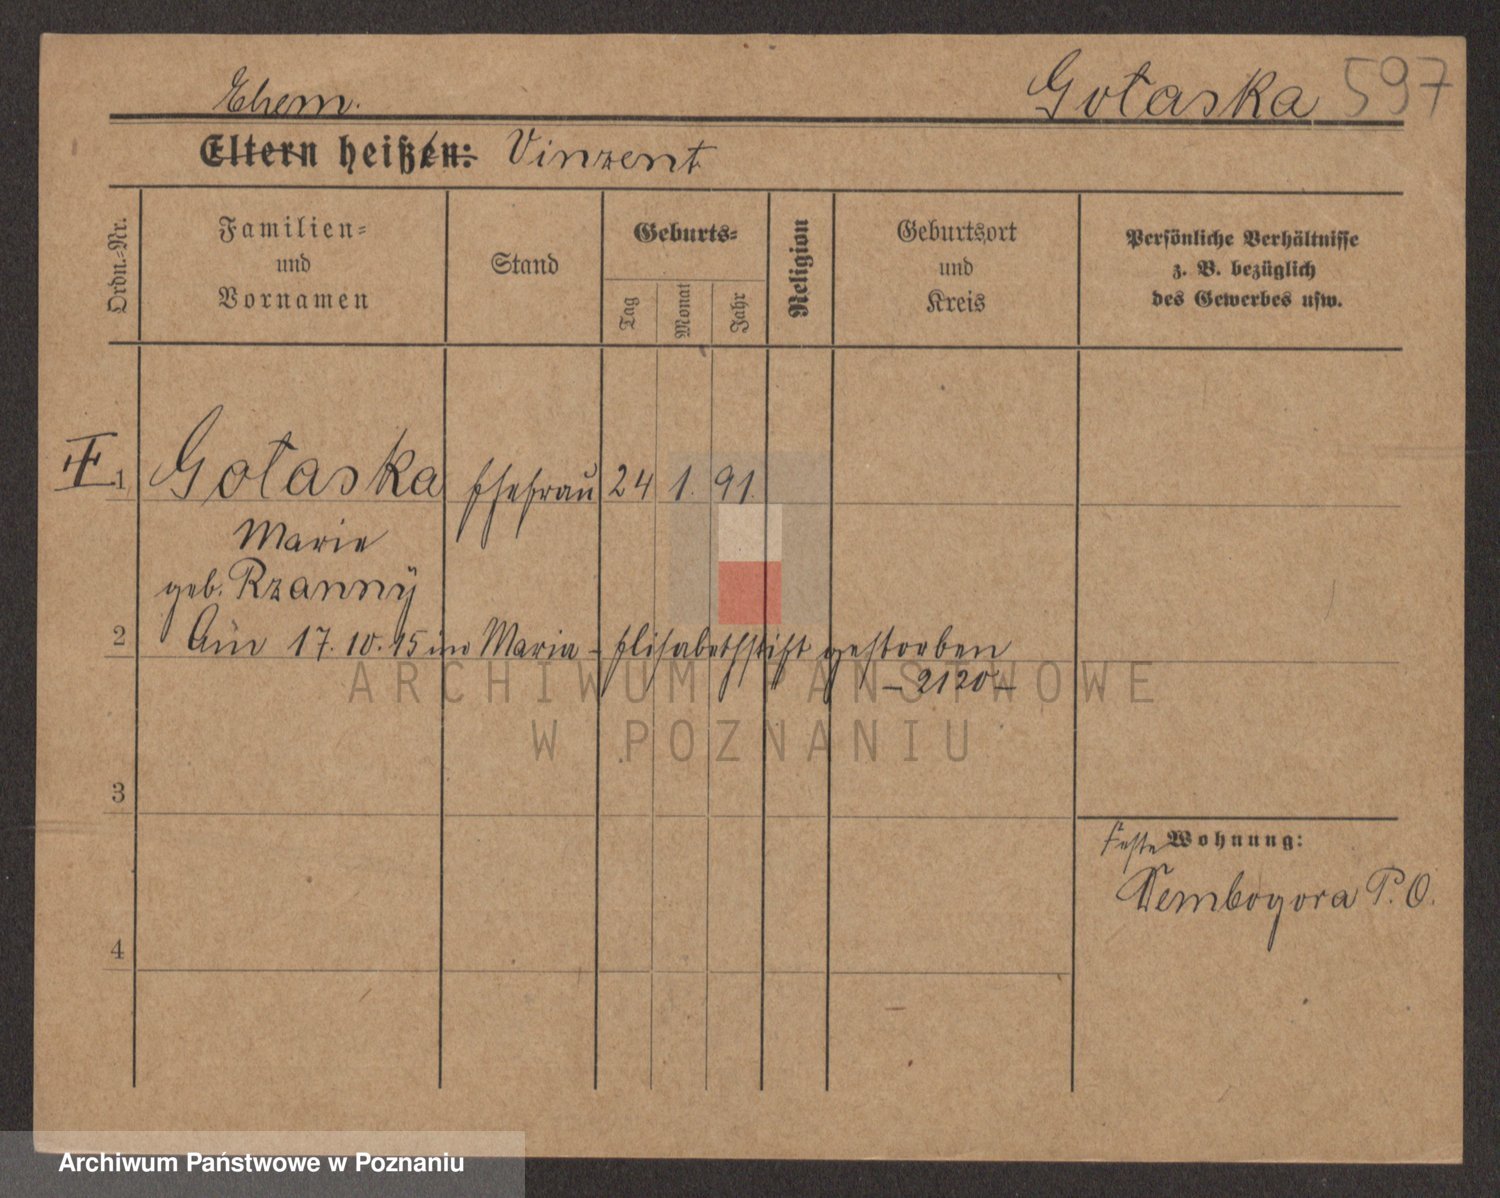 Ehem.
Gołaska 597
Eltern heißen: Vinzent
Ordn.-Nr.
Familien-
und
Vornamen
Stand
Geburts-
Tag
Monat
Jahr
Religion
Geburtsort
und
Kreis
Persönliche Verhältnisse
z. B. bezüglich
des Gewerbes usw.
1 Gołaska Ehefrau 24 1. 91.
Marie
geb. Rzanny
2 Am 17. 10. 15 im Maria-Elisabethstift gestorben
- 2120 -
ARCHIWUM PAŃSTWOWE
W POZNANIU
3
Feste Wohnung:
Dembogora P. O.
4
Archiwum Państwowe w Poznaniu